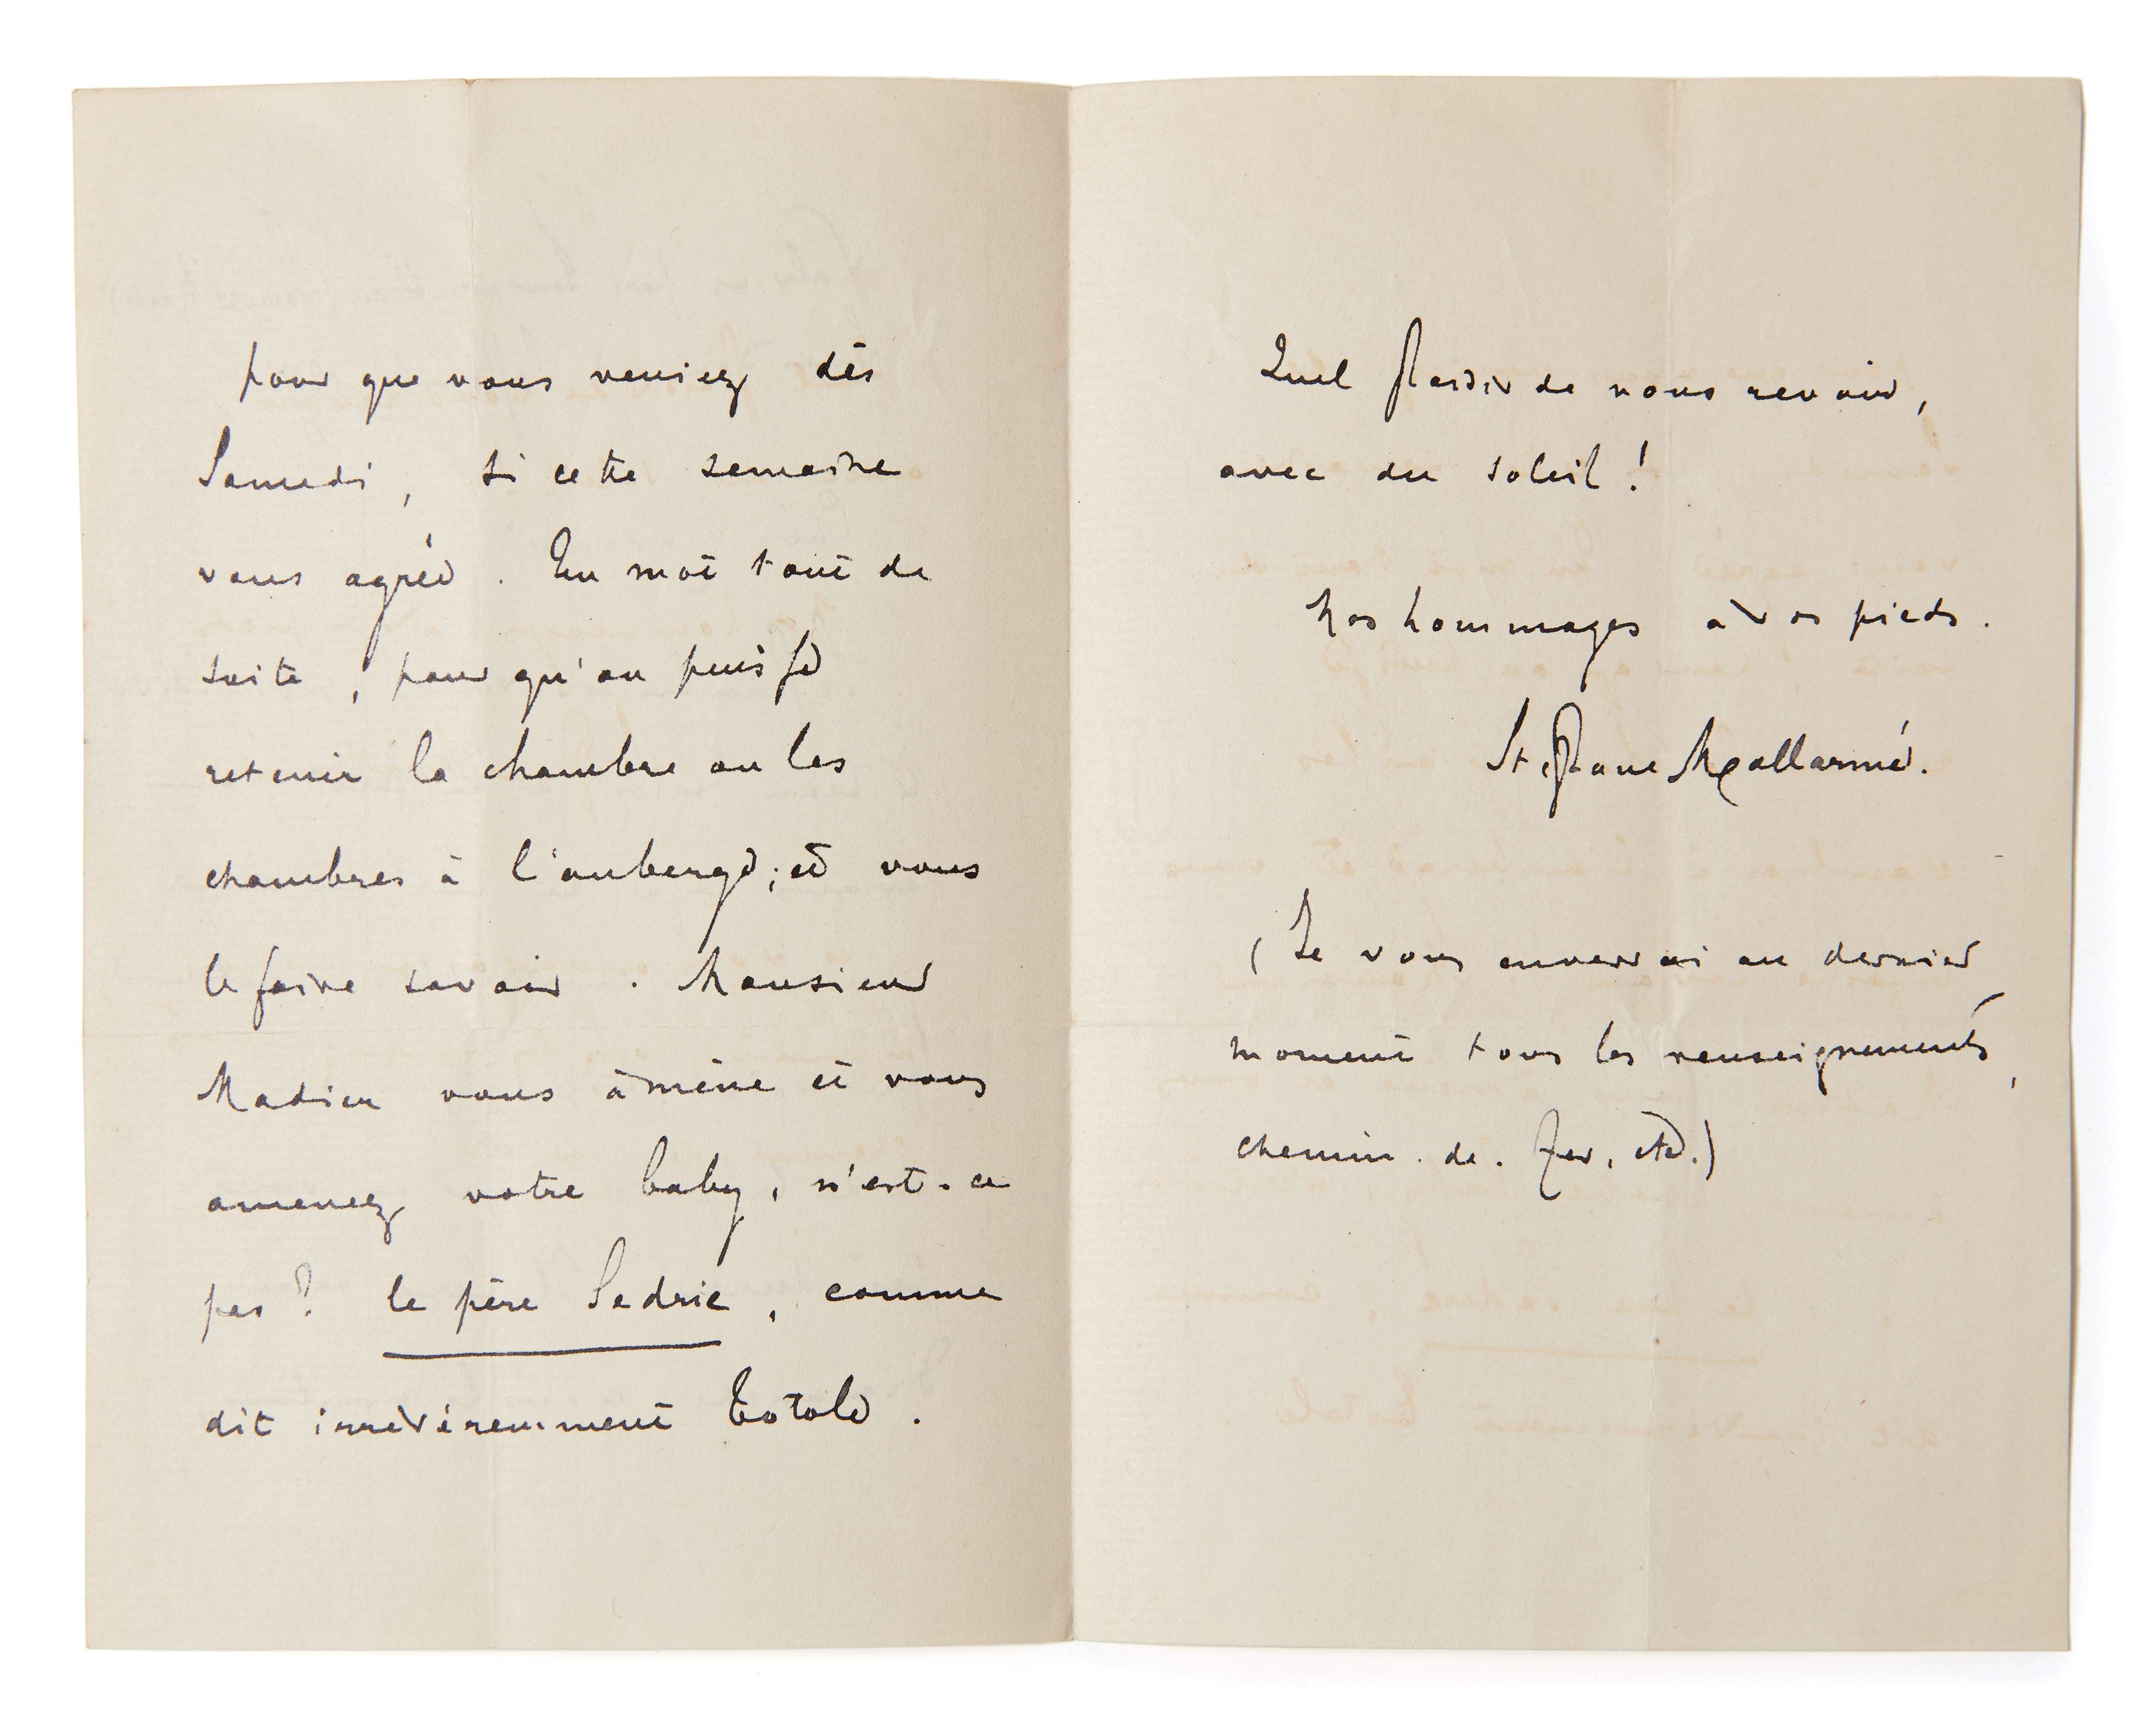 pour que vous veniez dès
Samedi, si cette semaine
vous agrée. Un mot tout de
suite, pour qu'on puisse
retenir la chambre ou les
chambres à l'auberge; et vous
le faire savoir. Monsieur
Madier vous amène et vous
amenez votre baby, n'est-ce
pas? le père Sedrie, comme
dit irrévéremment Totole.
Quel plaisir de nous revoir,
avec du soleil!
Nos hommages à vos pieds.
Stéphane Mallarmé.
(Je vous enverrai au dernier
moment tous les renseignements,
chemin. de. fer, etc.)